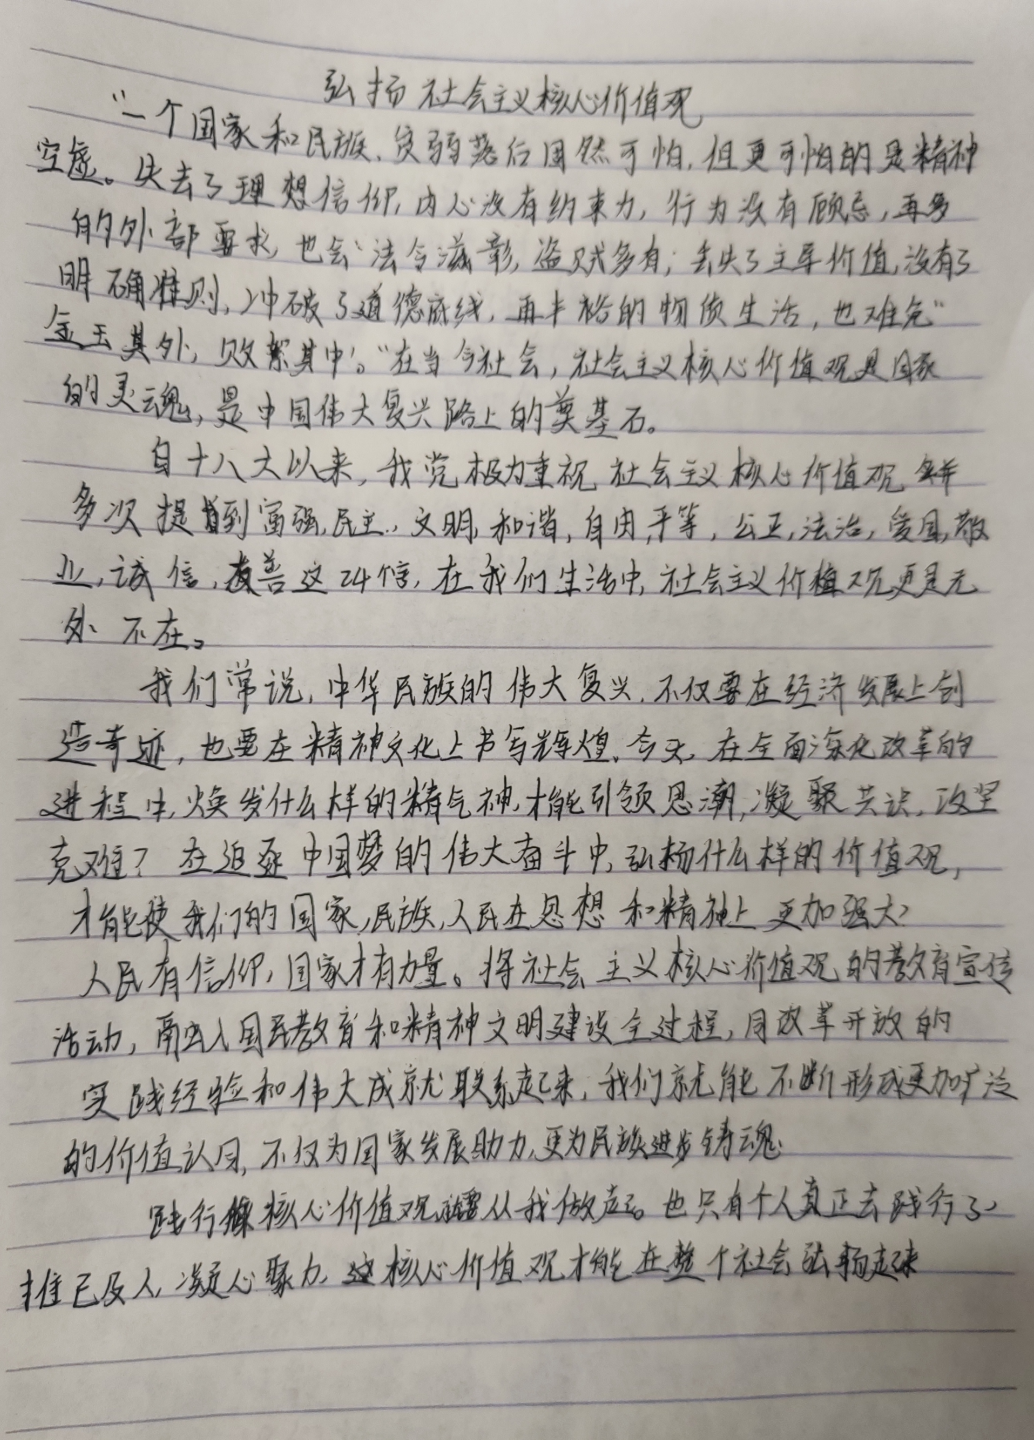 弘扬社会主义核心价值观
"一个国家和民族,贫弱落后固然可怕,但更可怕的是精神
空虚。失去了理想信仰,内心没有约束力,行为没有顾忌,再多
的外部要求,也会'法令滋彰,盗贼多有;丢失了主导价值,没有了
明确准则,冲破了道德底线,再丰裕的物质生活,也难免"
金玉其外,败絮其中'。"在当今社会,社会主义核心价值观是国家
的灵魂,是中国伟大复兴路上的奠基石。
自十八大以来,我党极力重视社会主义核心价值观并
多次提到富强,民主,文明,和谐,自由,平等,公正,法治,爱国,敬
业,诚信,友善这24个字,在我们生活中,社会主义价值观更是无
处不在。
我们常说,中华民族的伟大复兴,不仅要在经济发展上创
造奇迹,也要在精神文化上书写辉煌,今天,在全面深化改革的
进程中,焕发什么样的精气神,才能引领思潮,凝聚共识,攻坚
克难?在追逐中国梦的伟大奋斗中,弘扬什么样的价值观,
才能使我们的国家,民族,人民在思想和精神上更加强大?
人民有信仰,国家才有力量。将社会主义核心价值观的教育宣传
活动,融入国民教育和精神文明建设全过程,同改革开放的
实践经验和伟大成就联系起来,我们就能不断形成更加广泛
的价值认同,不仅为国家发展助力,更为民族进步铸魂
践行核心价值观需从我做起。也只有个人真正去践行了、
推己及人,凝心聚力,这核心价值观才能在整个社会弘扬起来